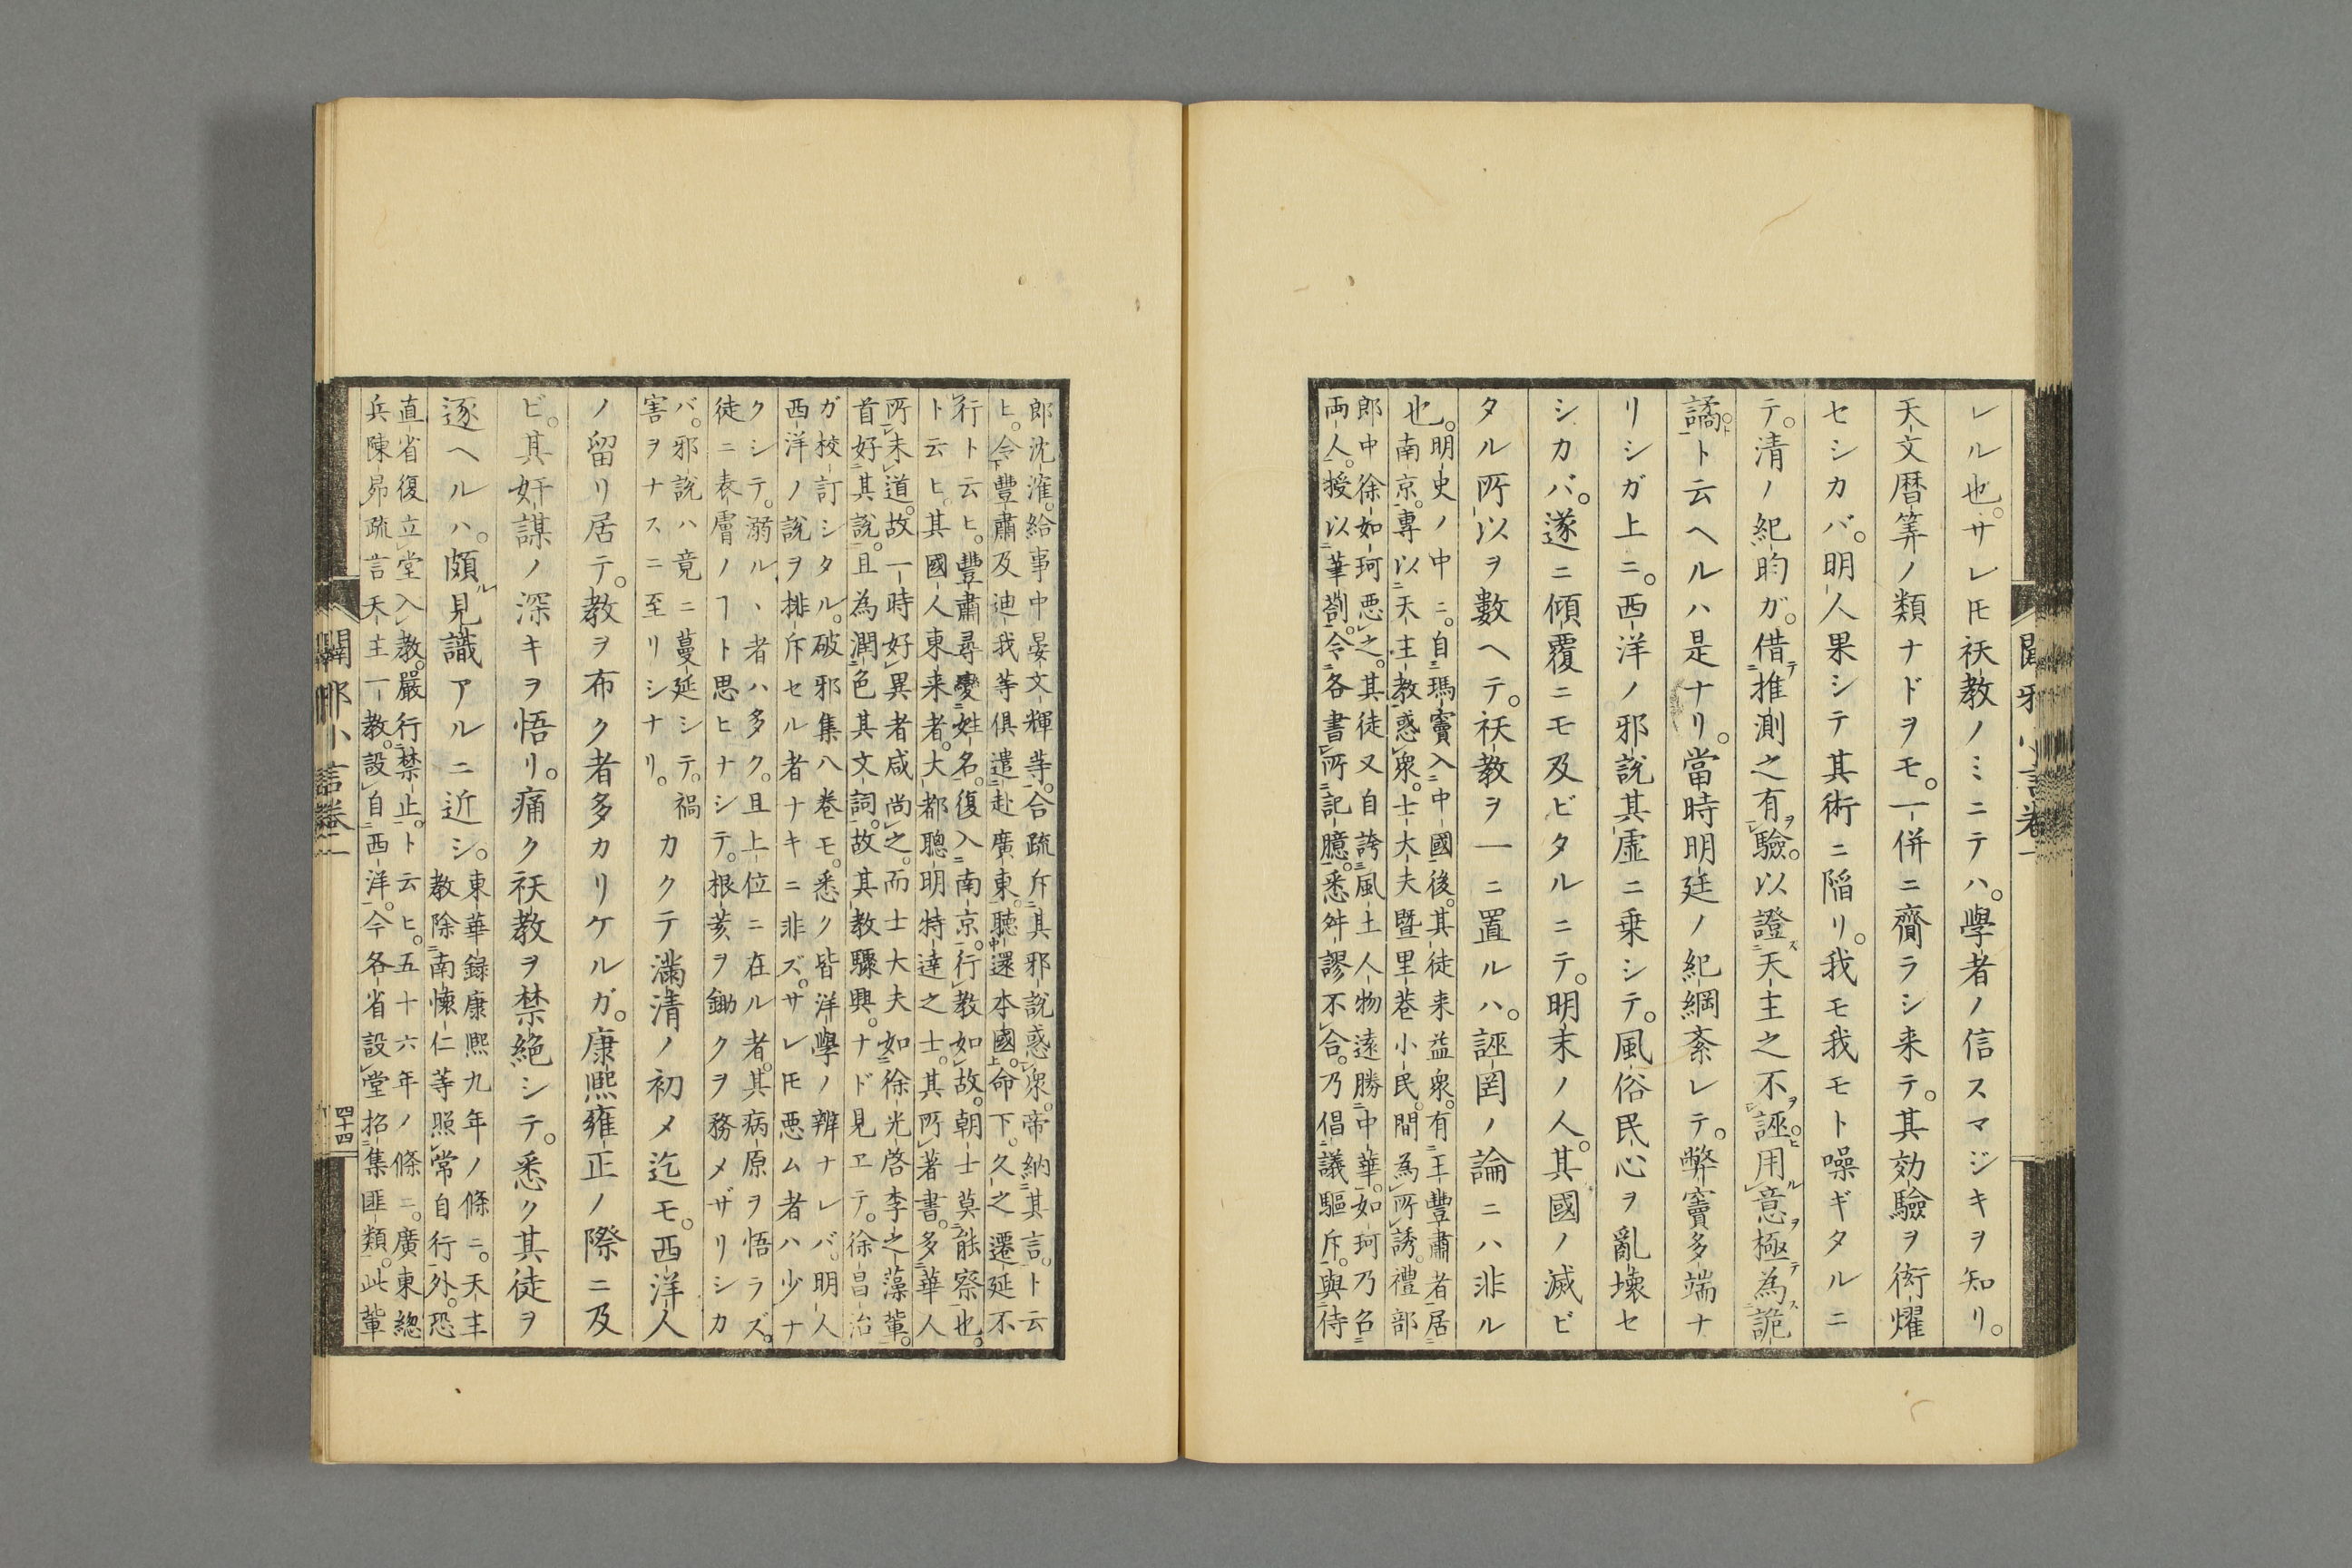 レル也。サレ𪜈祅教ノミニテハ。學者ノ信スマジキヲ知リ。
天文暦筭ノ類ナドヲモ。一併ニ齎ラシ来テ。其効驗ヲ衒燿
セシカバ。明人果シテ其術ニ陷リ。我モ我モト噪ギタルニ
テ。清ノ紀昀ガ。借推測之有驗。以證天主之不誣。用意極為詭
譎。ト云ヘルハ是ナリ。當時明廷ノ紀綱紊レテ。弊竇多端ナ
リシガ上ニ。西洋ノ邪說其虛ニ乗シテ。風俗民心ヲ亂壞セ
シカバ。遂ニ傾覆ニモ及ビタルニテ。明末ノ人。其國ノ滅ビ
タル所以ヲ數ヘテ。祅教ヲ一ニ置ルハ。誣罔ノ論ニハ非ル
也。
明史ノ中ニ。自瑪竇入中國後。其徒来益衆。有王豐肅者居
南京。專以天主教惑衆。士大夫暨里巷小民。間為所誘。禮部
郎中徐如珂惡之。其徒又自誇風土人物遠勝中華。如珂乃召
両人。授以筆劄。令各書所記臆。悉舛謬不合。乃倡議驅斥。與侍
郎沈㴶。給事中晏文輝等。合疏斥其邪說惑衆。帝納其言。ト云
ヒ。令豐肅及迪我等俱遣赴廣東。聽還本國。命下。久之遷延不
行ト云ヒ。豐肅尋變姓名。復入南京。行教如故。朝士莫能察也。
ト云ヒ。其國人東来者。大都聰明特達之士。其所著書。多華人
所未道。故一時好異者咸尚之。而士大夫如徐光啓李之藻輩。
首好其說。且為潤色其文詞。故其教驟興。ナド見エテ。徐昌治
ガ校訂シタル。破邪集八巻モ。悉ク皆洋學ノ辨ナレバ。明人
西洋ノ說ヲ排斥セル者ナキニ非ズ。サレ𪜈惡ム者ハ少ナ
クシテ。溺ル丶者ハ多ク。且上位ニ在ル者。其病原ヲ悟ラズ。
徒ニ表膚ノヿト思ヒナシテ。根荄ヲ鋤クヲ務メザリシカ
バ。邪說ハ竟ニ蔓延シテ。禍
害ヲナスニ至リシナリ。
カクテ滿清ノ初メ迄モ。西洋人
ノ留リ居テ。教ヲ布ク者多カリケルガ。康熙雍正ノ際ニ及
ビ。其奸謀ノ深キヲ悟リ。痛ク祅教ヲ禁絶シテ。悉ク其徒ヲ
逐ヘルハ。頗ル見識アルニ近シ。
東華録康熙九年ノ條ニ。天主
教除南懷仁等照常自行外。恐
直省復立堂入教。嚴行禁止。ト云ヒ。五十六年ノ條ニ。廣東總
兵陳昴疏言天主一教。設自西洋。今各省設堂招集匪類。此輩
闢邪小言巻一
四十四